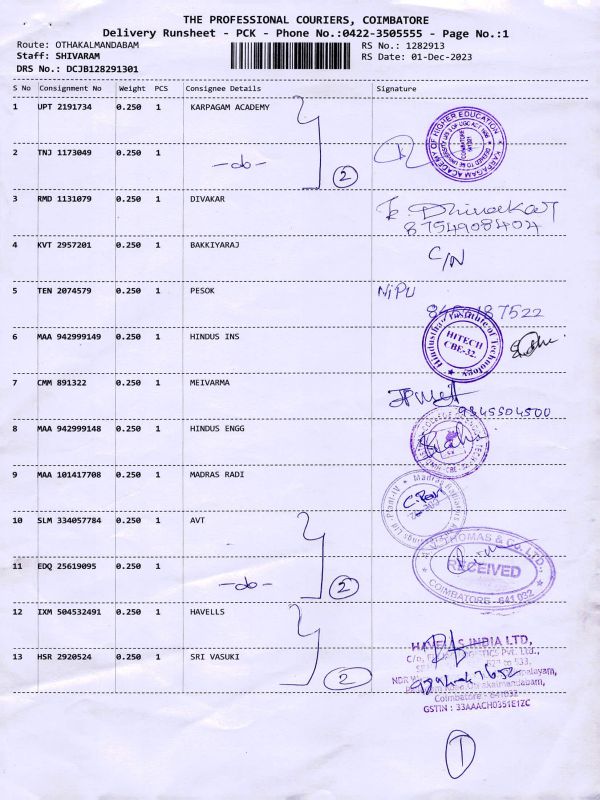 THE PROFESSIONAL COURIERS, COIMBATORE
Delivery Runsheet - PCK - Phone No.:0422-3505555 - Page No.:1
Route: OTHAKALMANDABAM
RS No.: 1282913
Staff: SHIVARAM
RS Date: 01-Dec-2023
DRS No.: DCJB128291301
S No Consignment No Weight PCS Consignee Details Signature
1 UPT 2191734 0.250 1 KARPAGAM ACADEMY
KARPAGAM ACADEMY OF HIGHER EDUCATION
2 TNJ 1173049 0.250 1 -do- 2
3 RMD 1131079 0.250 1 DIVAKAR
8754908404
4 KVT 2957201 0.250 1 BAKKIYARAJ C/N
5 TEN 2074579 0.250 1 PESOK NiPU
6 MAA 942999149 0.250 1 HINDUS INS
Hindusthan Institute of Technology
HITECH
CBE-32
7 CMM 891322 0.250 1 MEIVARMA
9345504500
8 MAA 942999148 0.250 1 HINDUS ENGG
9 MAA 101417708 0.250 1 MADRAS RADI
10 SLM 334057784 0.250 1 AVT
THOMAS & CO. LTD.
RECEIVED
COIMBATORE - 641 032
11 EDQ 25619095 0.250 1 -do- 2
12 IXM 504532491 0.250 1 HAVELLS
HAVELLS INDIA LTD,
13 HSR 2920524 0.250 1 SRI VASUKI 2
Coimbatore - 641032
GSTIN : 33AAACH0351E1ZC
1